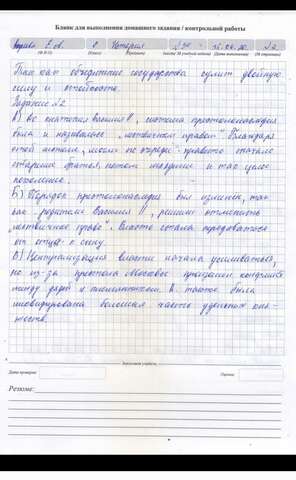 Бланк для выполнения домашнего задания / контрольной работы
8 История
(Ф.И.О) (Класс) (Предмет) (месяц / № учебной недели) (Дата выполнения) (№ страницы)
Так как объединение государства сулит двойную
силу и стойкость.
Задание №2.
А) Во времена Василия II, система престолонаследия
была и называлась "лествичное право". Благодаря
этой системе, "после по очереди" правили сначало
старшие братья, потом младшие и так целое
поколение.
Б) Порядок престолонаследия был изменен, так
как родители Василия II, решили отменить
"лествичное право". Власть стала передоваться
от отца к сыну.
В) Централизация власти начала усиливаться,
но из-за престола Московск. произошел конфликт
между дядей и племянником. А также была
ликвидирована большая часть удельных кня-
жеств.
Заполняет учитель
Дата проверки Оценка
Резюме: